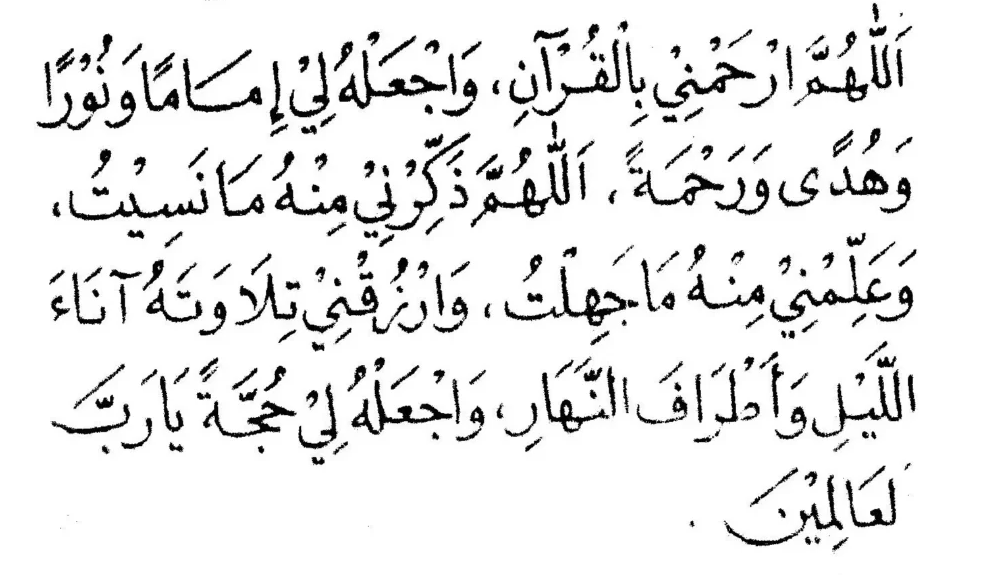 اَللّٰهُمَّ ارْحَمْنِيْ بِالْقُرْآنِ، وَاجْعَلْهُ لِيْ إِمَامًا وَنُوْرًا
وَهُدًى وَرَحْمَةً، اَللّٰهُمَّ ذَكِّرْنِيْ مِنْهُ مَا نَسِيْتُ،
وَعَلِّمْنِيْ مِنْهُ مَا جَهِلْتُ، وَارْزُقْنِيْ تِلَاوَتَهُ آنَاءَ
اللَّيْلِ وَأَطْرَافَ النَّهَارِ، وَاجْعَلْهُ لِيْ حُجَّةً يَا رَبَّ
لعَالَمِيْنَ.